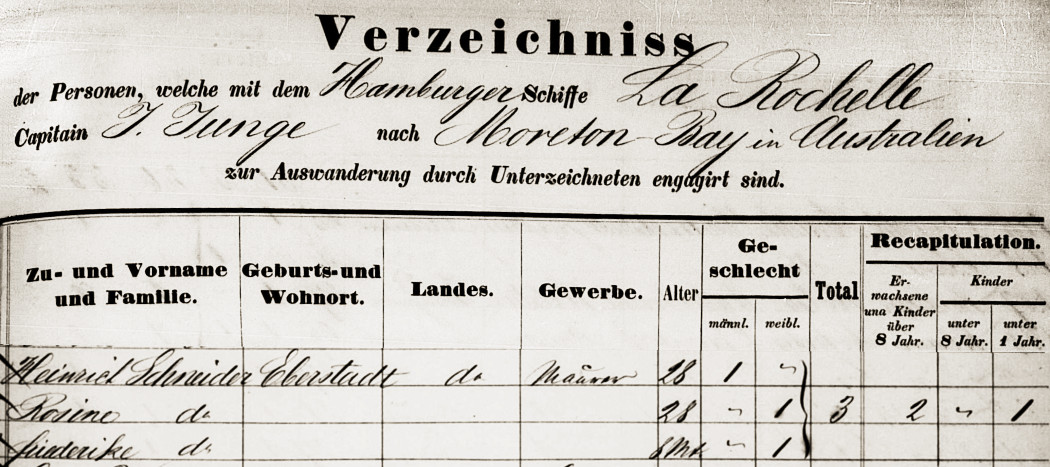 Verzeichniss
der Personen, welche mit dem Hamburger Schiffe La Rochelle
Capitain J. Junge nach Moreton-Bay in Australien
zur Auswanderung durch Unterzeichneten engagirt sind.
Zu- und Vorname und Familie. Geburts-und Wohnort. Landes. Gewerbe. Alter Ge-schlecht männl. weibl. Total Recapitulation. Er-wachsene und Kinder über 8 Jahr. Kinder unter 8 Jahr. unter 1 Jahr.
Heinrich Schneider Eberstadt do Maurer 28 1 "
Rosine do 28 " 1 3 2 " 1
Friederike do 8 Mt " 1